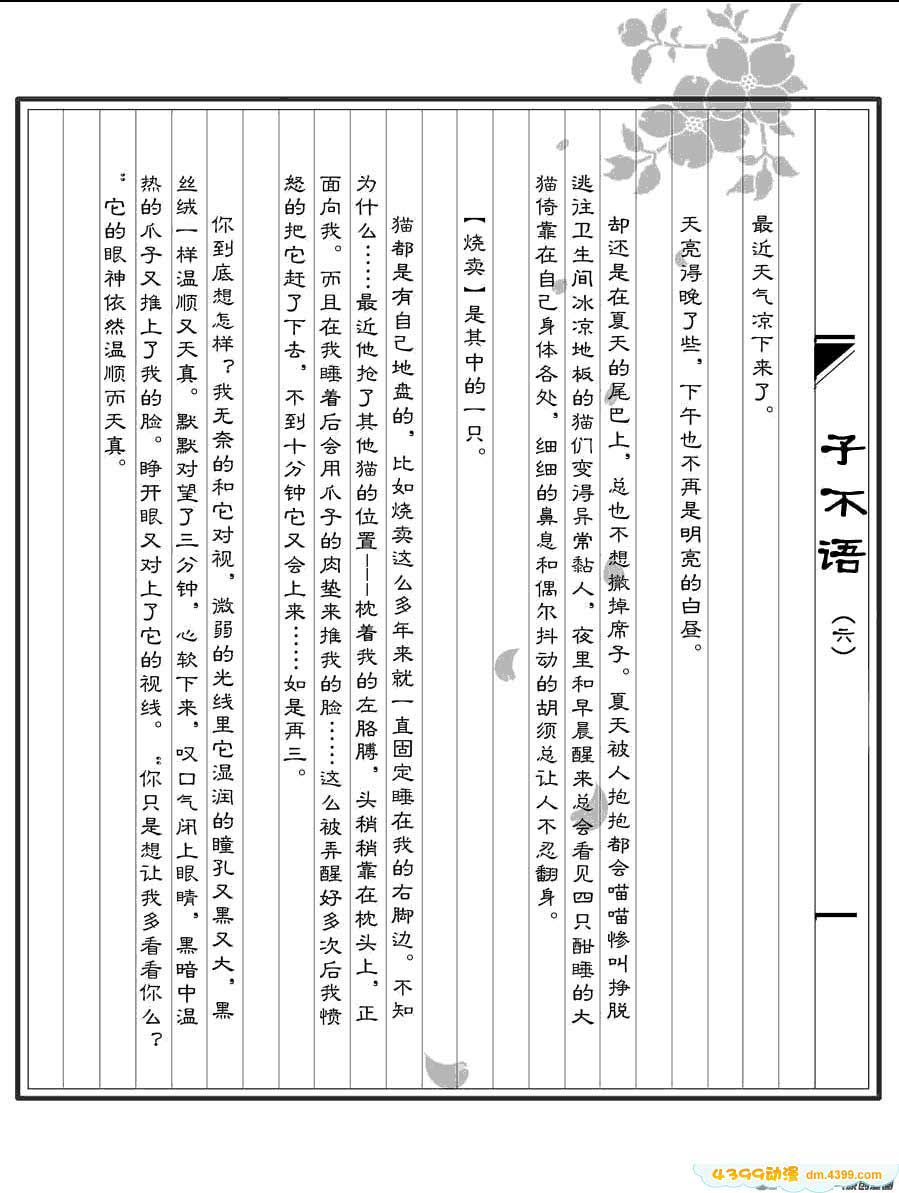 子不语
（六）
最近天气凉下来了。
天亮得晚了些，下午也不再是明亮的白昼。
却还是在夏天的尾巴上，总也不想撤掉席子。夏天被人抱抱都会喵喵惨叫挣脱
逃往卫生间冰凉地板的猫们变得异常黏人，夜里和早晨醒来总会看见四只酣睡的大
猫倚靠在自己身体各处，细细的鼻息和偶尔抖动的胡须总让人不忍翻身。
【烧卖】是其中的一只。
猫都是有自己地盘的，比如烧卖这么多年来就一直固定睡在我的右脚边。不知
为什么……最近他抢了其他猫的位置———枕着我的左胳膊，头稍稍靠在枕头上，正
面向我。而且在我睡着后会用爪子的肉垫来推我的脸……这么被弄醒好多次后我愤
怒的把它赶了下去，不到十分钟它又会上来……如是再三。
你到底想怎样？我无奈的和它对视，微弱的光线里它湿润的瞳孔又黑又大，黑
丝绒一样温顺又天真。默默对望了三分钟，心软下来，叹口气闭上眼睛，黑暗中温
热的爪子又推上了我的脸。睁开眼又对上了它的视线。“你只是想让我多看看你么？
”它的眼神依然温顺而天真。
4399动漫 dm.4399.com